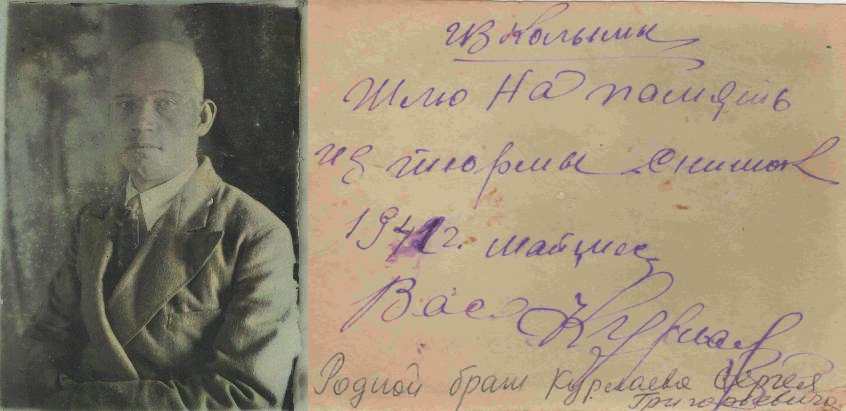 из Колымы
Шлю На память
из тюрмы снимок
1941г.
Вася Курлаев
Родной брат Курлаева Сергея
Григорьевича